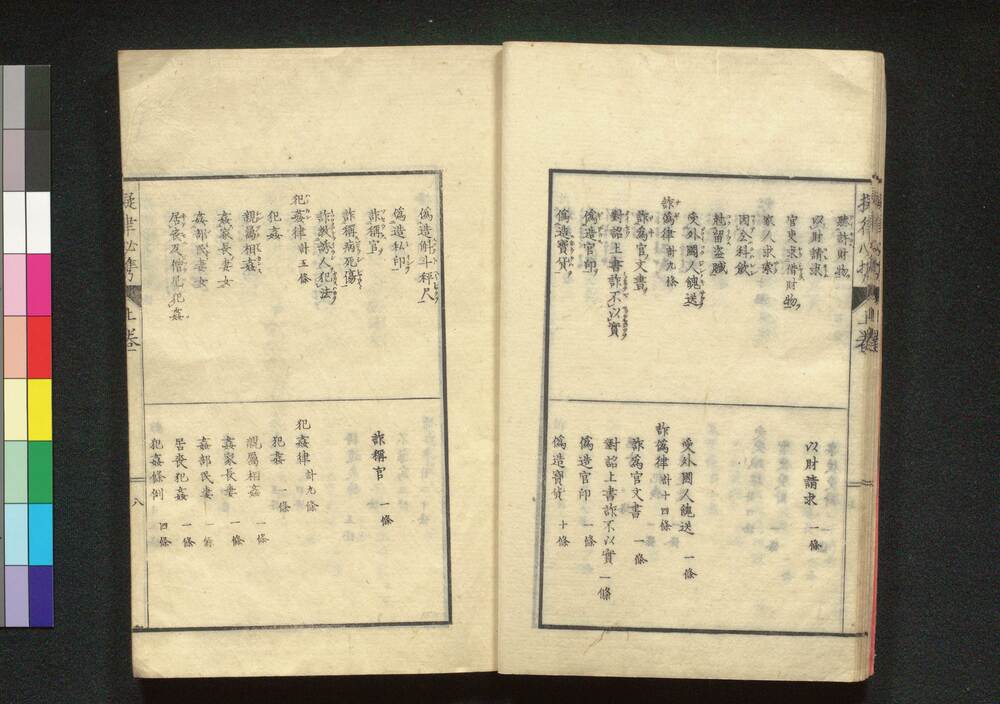 聽許財物
以財請求
官吏求借財物
家人求索
因公科斂
尅留盜贓
受外國人餽送
詐僞律 計九條
詐爲官文書
對詔上書詐不以實
僞造官印
僞造寶貨
以財請求 一條
受外國人餽送 一條
詐僞律 計十四條
詐爲官文書 一條
對詔上書詐不以實 一條
僞造官印 一條
僞造寶貨 十條
僞造斛斗秤尺
僞造私印
詐稱官
詐稱病死傷
詐敎誘人犯法
犯姦律 計五條
犯姦
親屬相姦
姦家長妻女
姦部民妻女
居喪及僧尼犯姦
詐稱官 一條
犯姦律 計九條
犯姦 一條
親屬相姦 一條
姦家長妻 一條
姦部民妻 一條
居喪犯姦 一條
犯姦條例 四條
擬律必擕 上卷
八